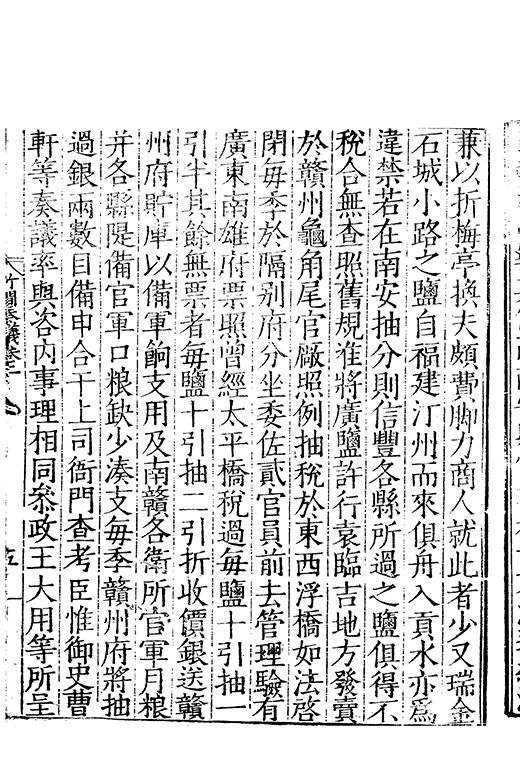 兼以折梅亭換夫頗費脚力商人就此者少又瑞金
石城小路之鹽自福建汀州而來俱舟入貢水亦爲
違禁若在南安抽分則信豐各縣所過之鹽俱得不
稅合無查照舊規准將廣鹽許行袁臨吉地方發賣
於贛州龜角尾官廠照例抽稅於東西浮橋如法啓
閉毎季於隔别府分坐委佐貳官員前去管理驗有
廣東南雄府票照曾經太平橋稅過毎鹽十引抽一
引半其餘無票者毎鹽十引抽二引折收價銀送贛
州府貯庫以備軍餉支用及南贛各衛所官軍月粮
并各縣隄備官軍口粮缺少湊支毎季贛州府將抽
過銀兩數目備申合干上司衙門查考臣惟御史曹
軒等奏議率與咨内事理相同叅政王大用等所呈